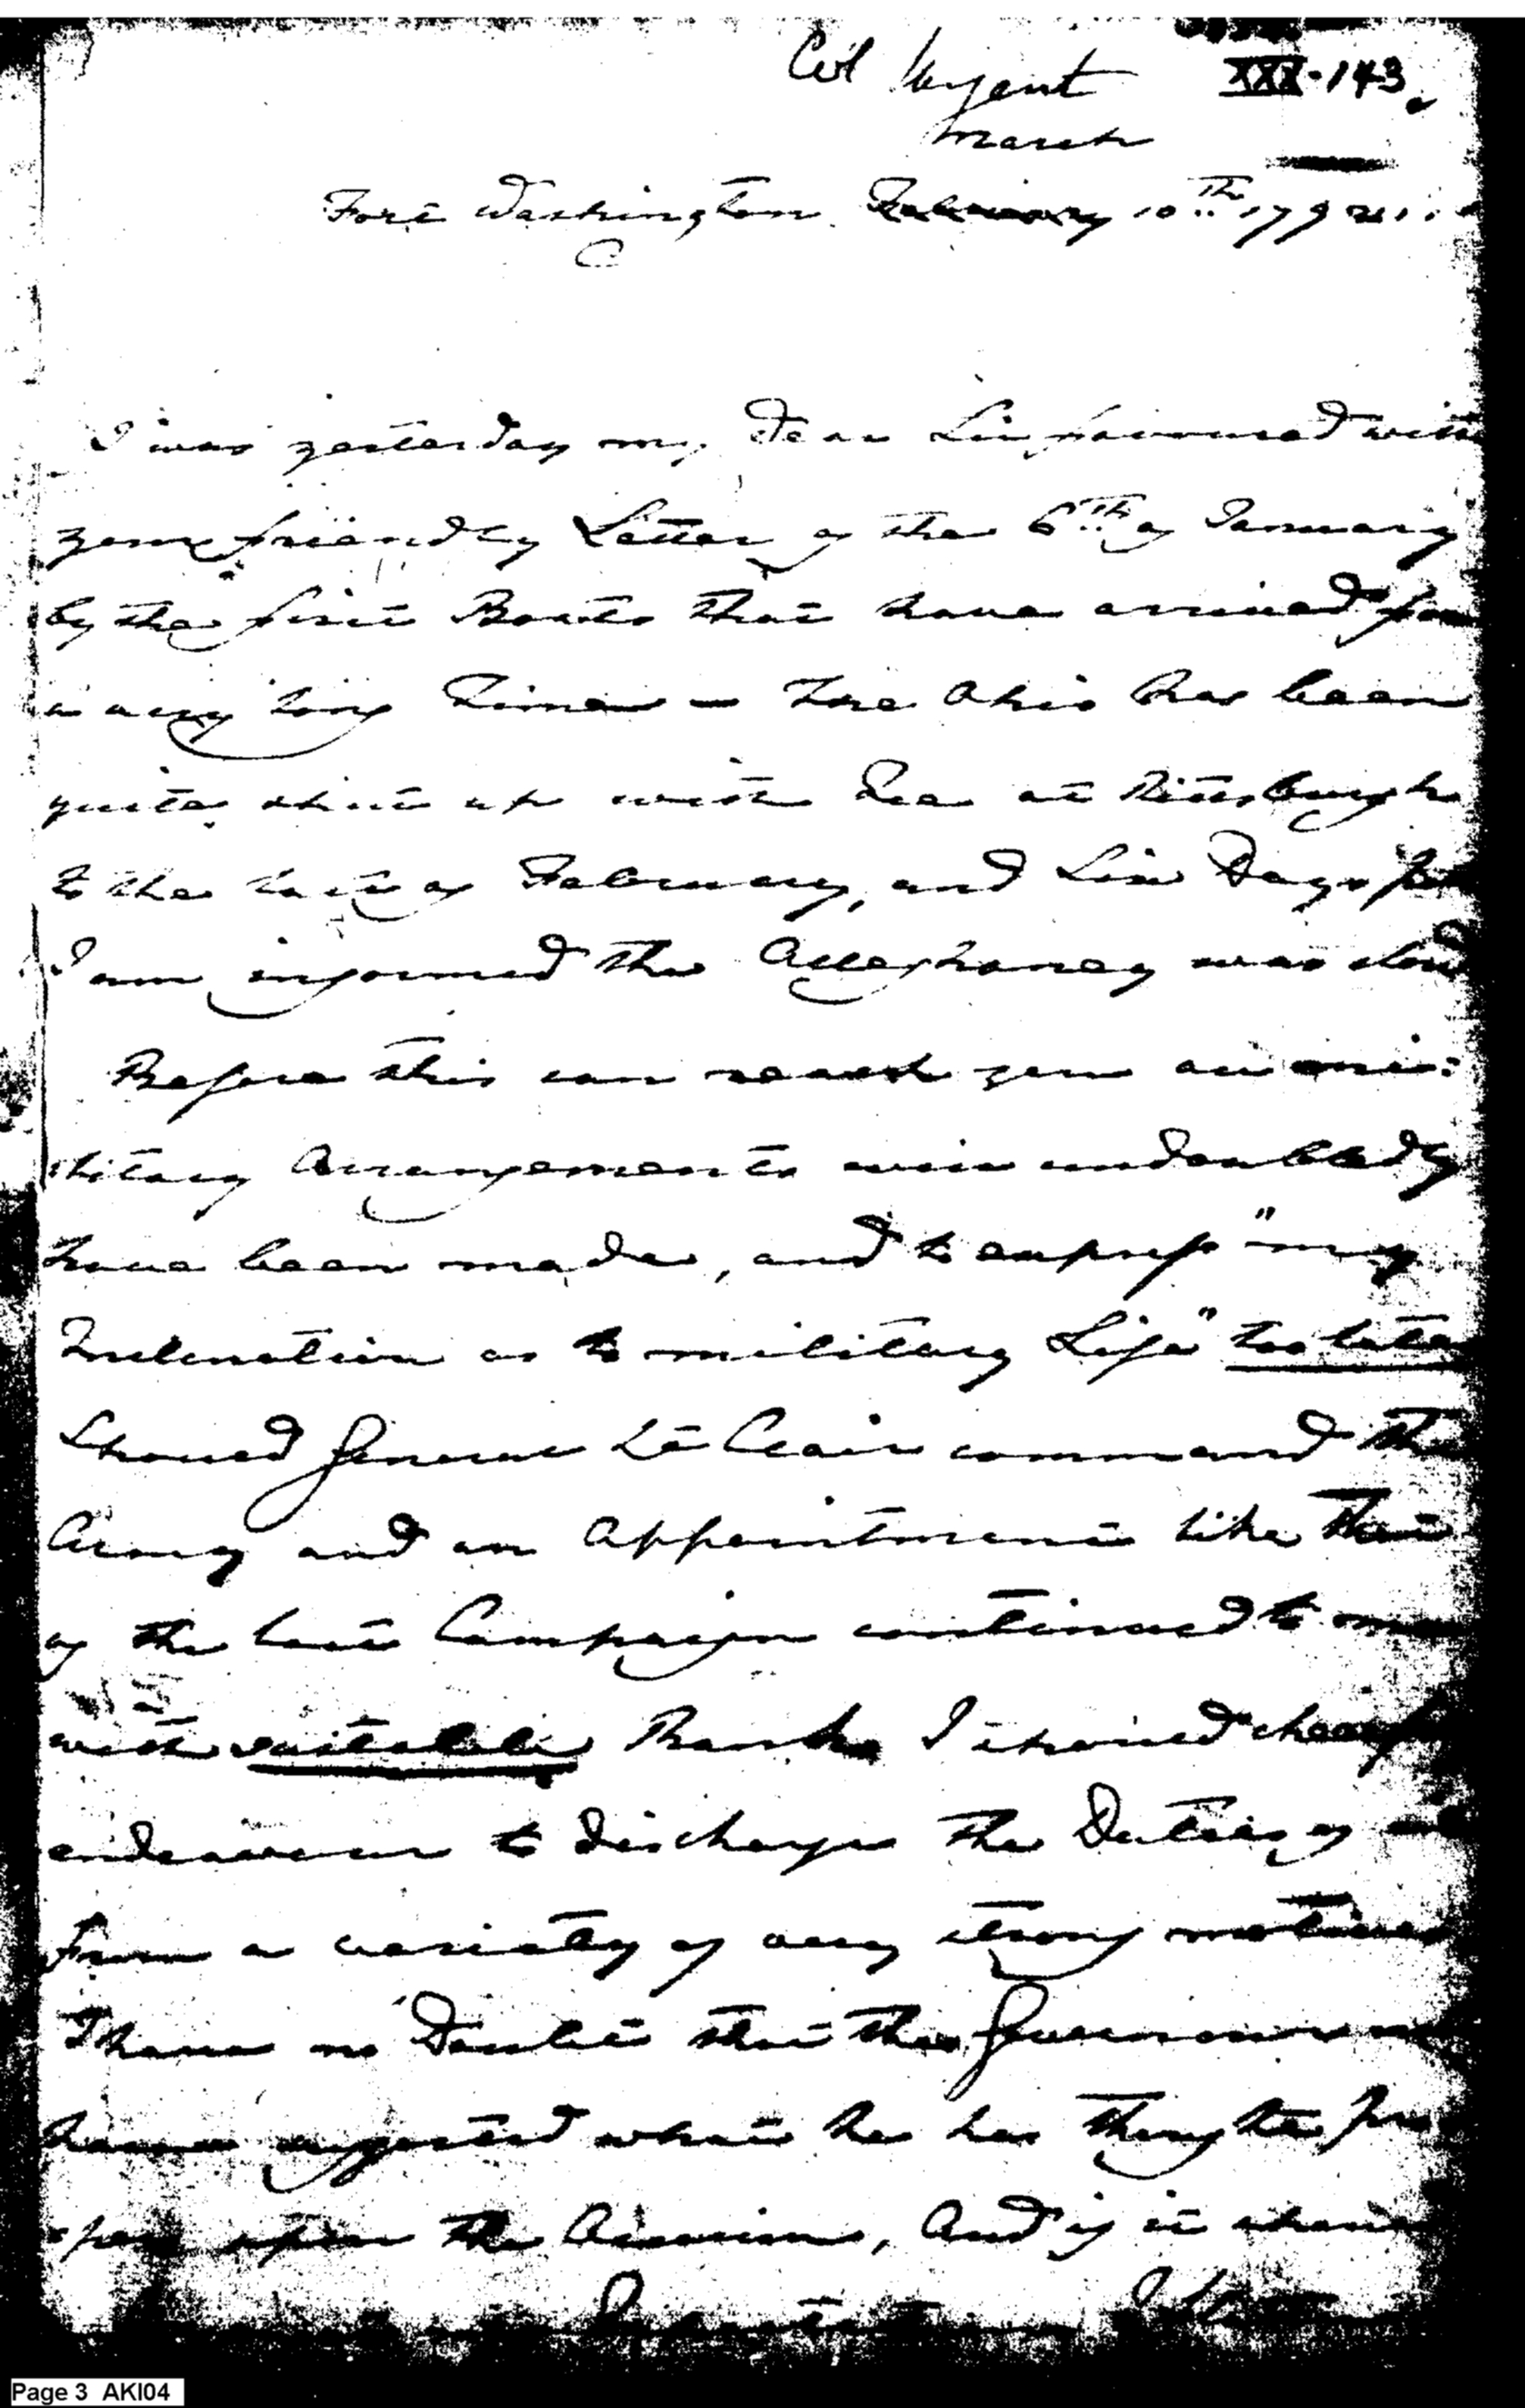 XXX-143
Col Sargent
March
Fort Washington February 10th 1792
I was yesterday my dear Sir favoured with
your friendly Letter of the 6th of January
by the first Boats that have arrived for
a very long Time — The Ohio has been
quite shut up with Ice at Pittsburgh
to the last of February, and Six Days
I am informed the Alleghaney was
Before this can reach you all mi:
:litary Arrangements will undoubtedly
have been made, and to express "my
Inclination as to military Life" too late
Should General St Clair command the
Army and an Appointment like that
of the last Campaign continued to me
with suitable Rank I should
endeavour to discharge the Duties of
from a variety of very strong motives
I have no Doubt that the Governour
have suggested what he has thought pro
:per upon the Occasion, And if it